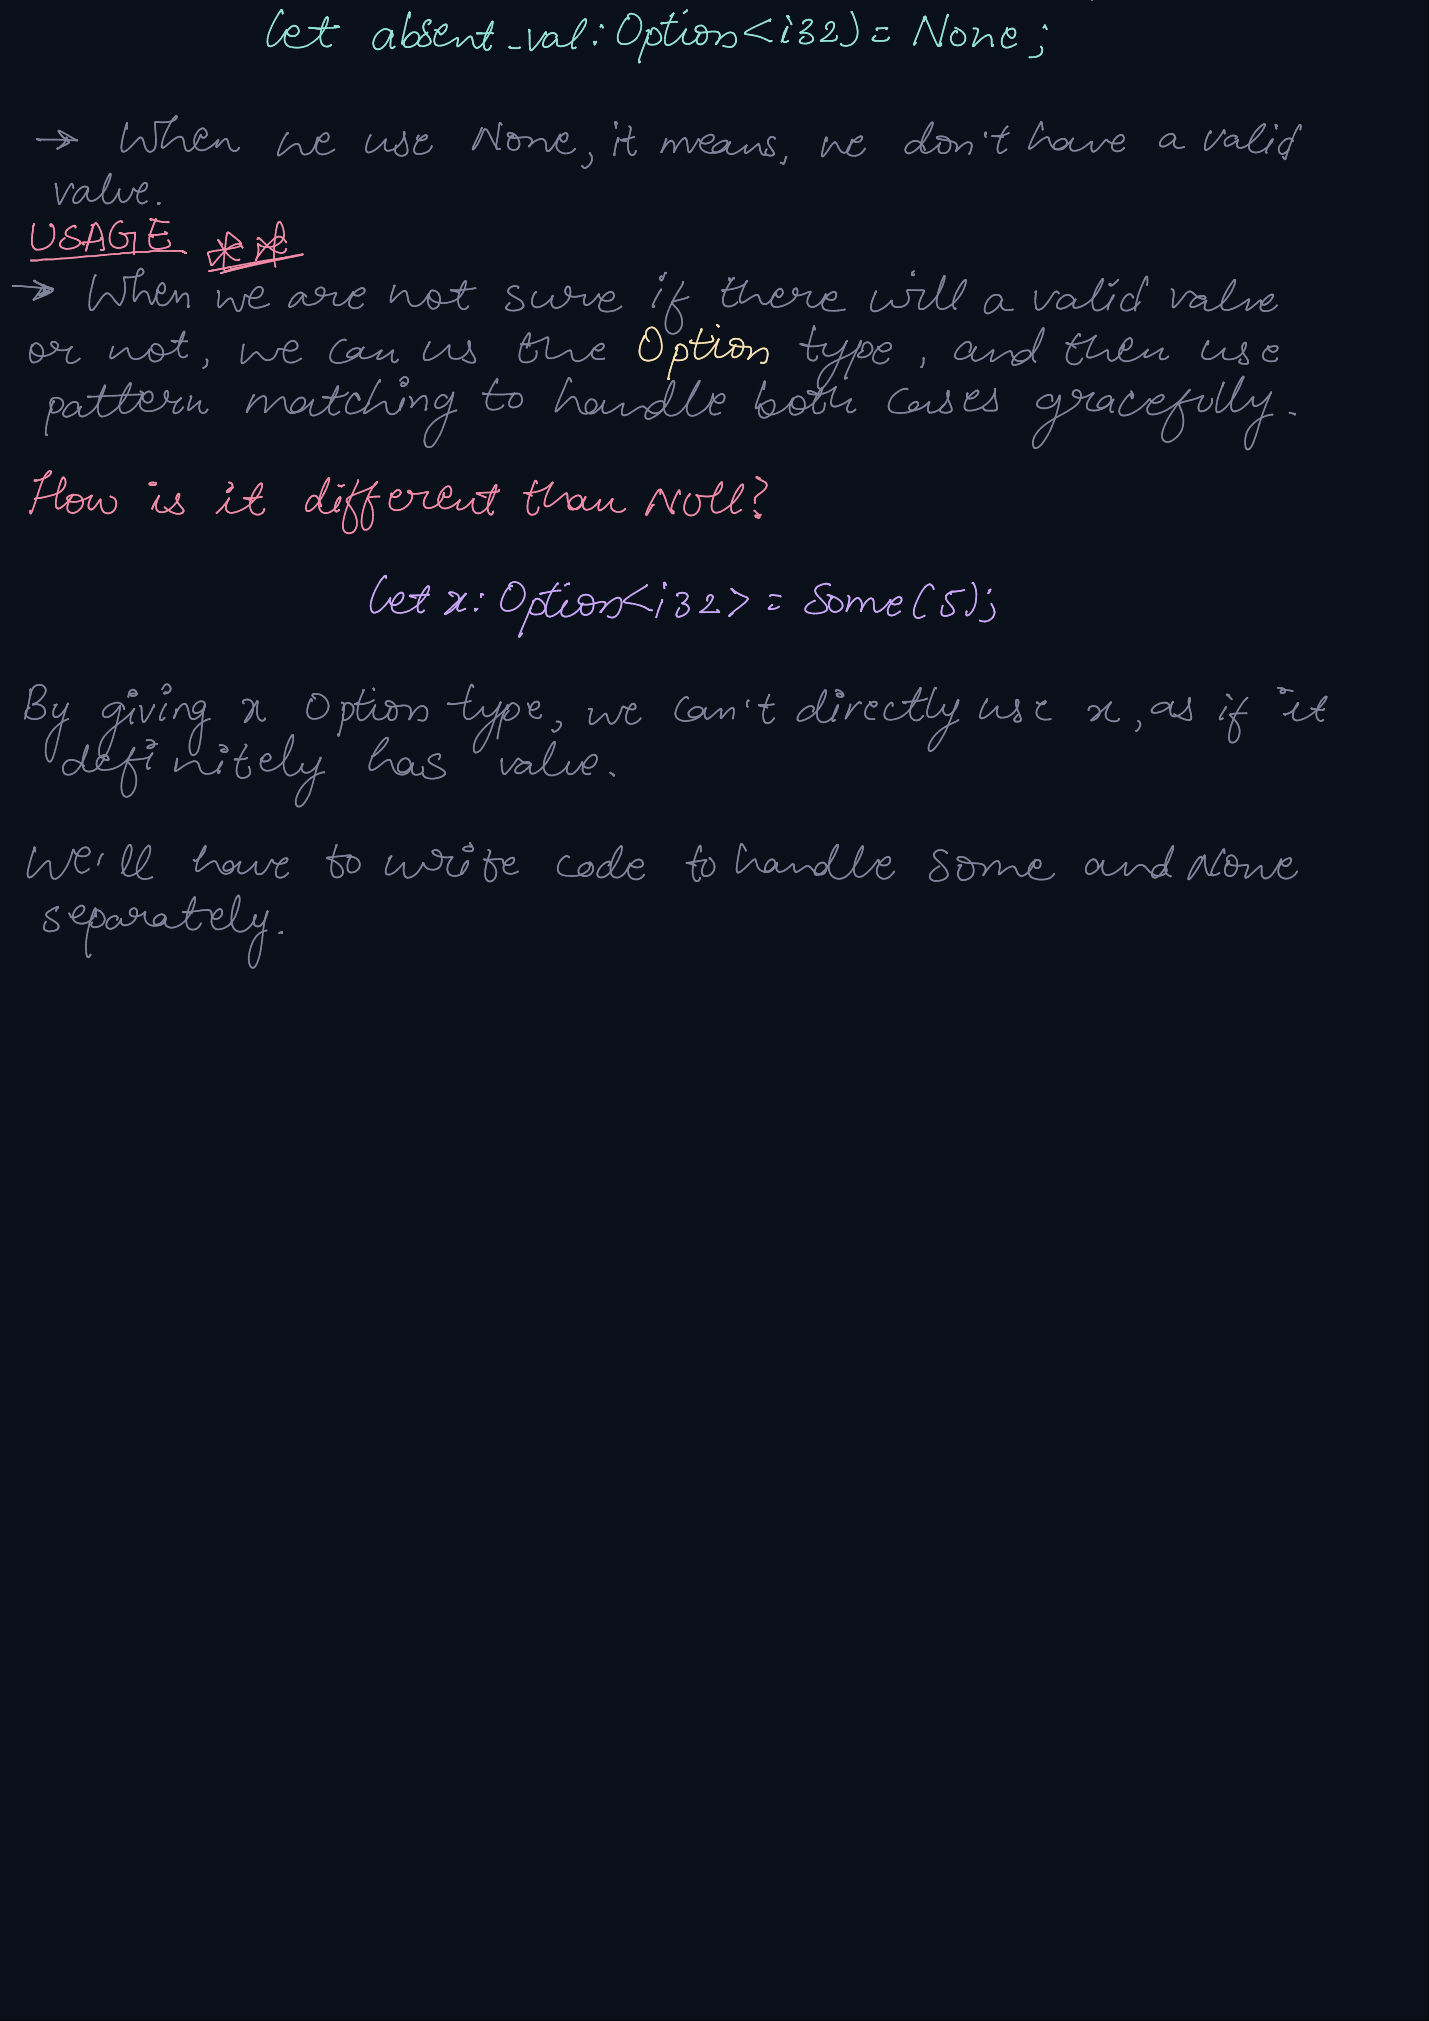 let absent_val: Option<i32) = None;
→ When we use None, it means, we don't have a valid
value.
USAGE **
→ When we are not sure if there will a valid value
or not, we can us the Option type, and then use
pattern matching to handle both cases gracefully.
How is it different than NULL?
let x: Option<i32> = Some(5);
By giving x Option type, we can't directly use x, as if it
definitely has value.
We'll have to write code to handle Some and None
separately.